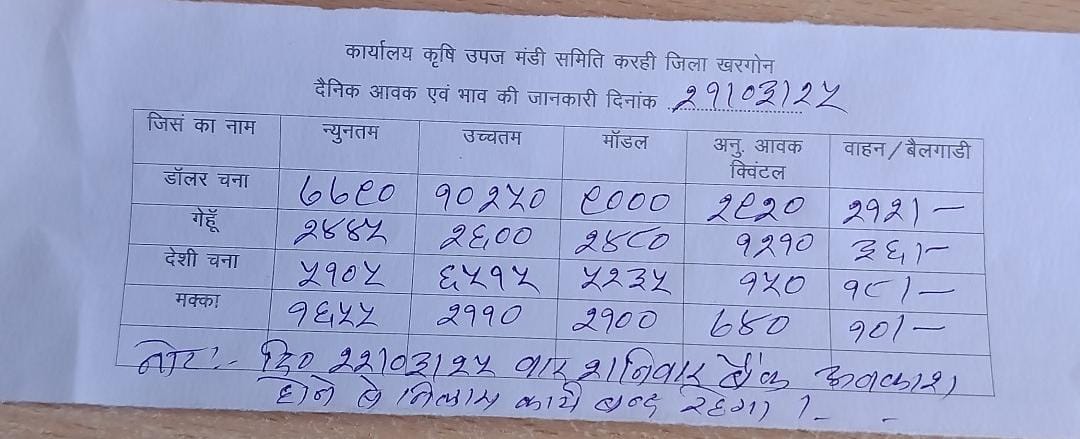 कार्यालय कृषि उपज मंडी समिति करही जिला खरगोन
दैनिक आवक एवं भाव की जानकारी दिनांक २१/०३/२५
जिसं का नाम न्युनतम उच्चतम मॉडल अनु. आवक वाहन/बैलगाडी
क्विंटल
डॉलर चना ७७९० १०२५० ९००० २९२० २१२/-
गेहूँ २४४५ २६०० २४८० १२१० ३६/-
देशी चना ५१०५ ६५१५ ५२३५ १५० १८/-
मक्का १६५५ २११० २१०० ७४० १०/-
नोट:- दि० २२/०३/२५ वार शनिवार बैंक अवकाश
होने से निलाम कार्य बन्द रहेगा ।-